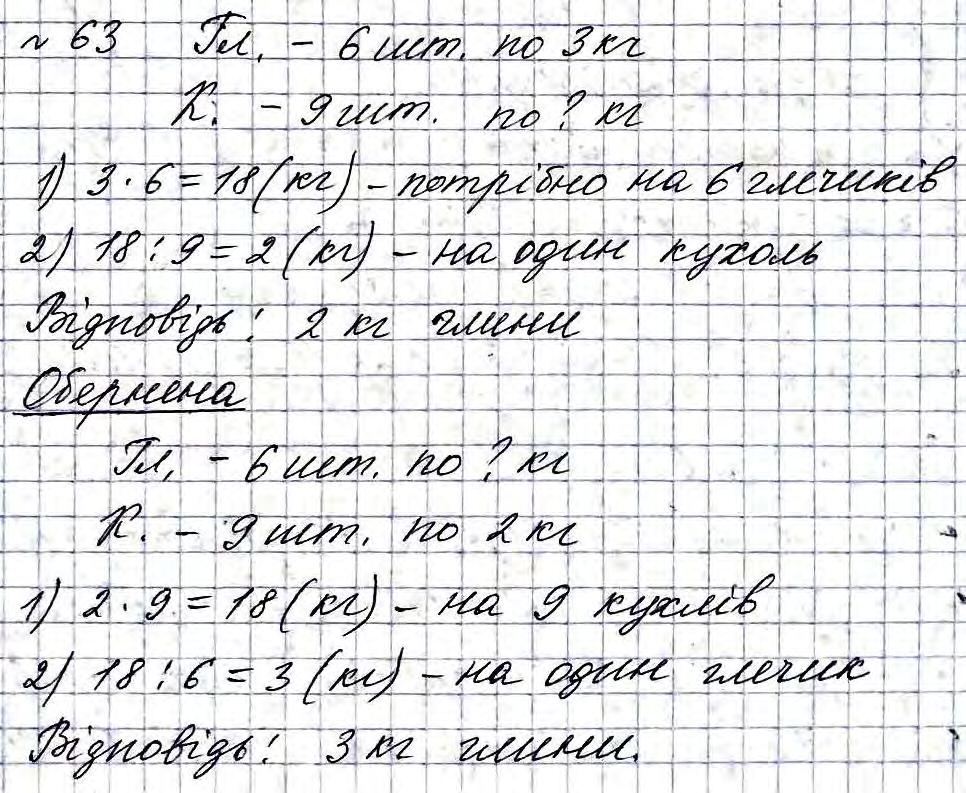 № 63 Гл. - 6 шт. по 3 кг
К. - 9 шт. по ? кг
1) 3 · 6 = 18 (кг) - потрібно на 6 глечиків
2) 18 : 9 = 2 (кг) - на один кухоль
Відповідь: 2 кг глини
Обернена
Гл. - 6 шт. по ? кг
К. - 9 шт. по 2 кг
1) 2 · 9 = 18 (кг) - на 9 кухлів
2) 18 : 6 = 3 (кг) - на один глечик
Відповідь: 3 кг глини.